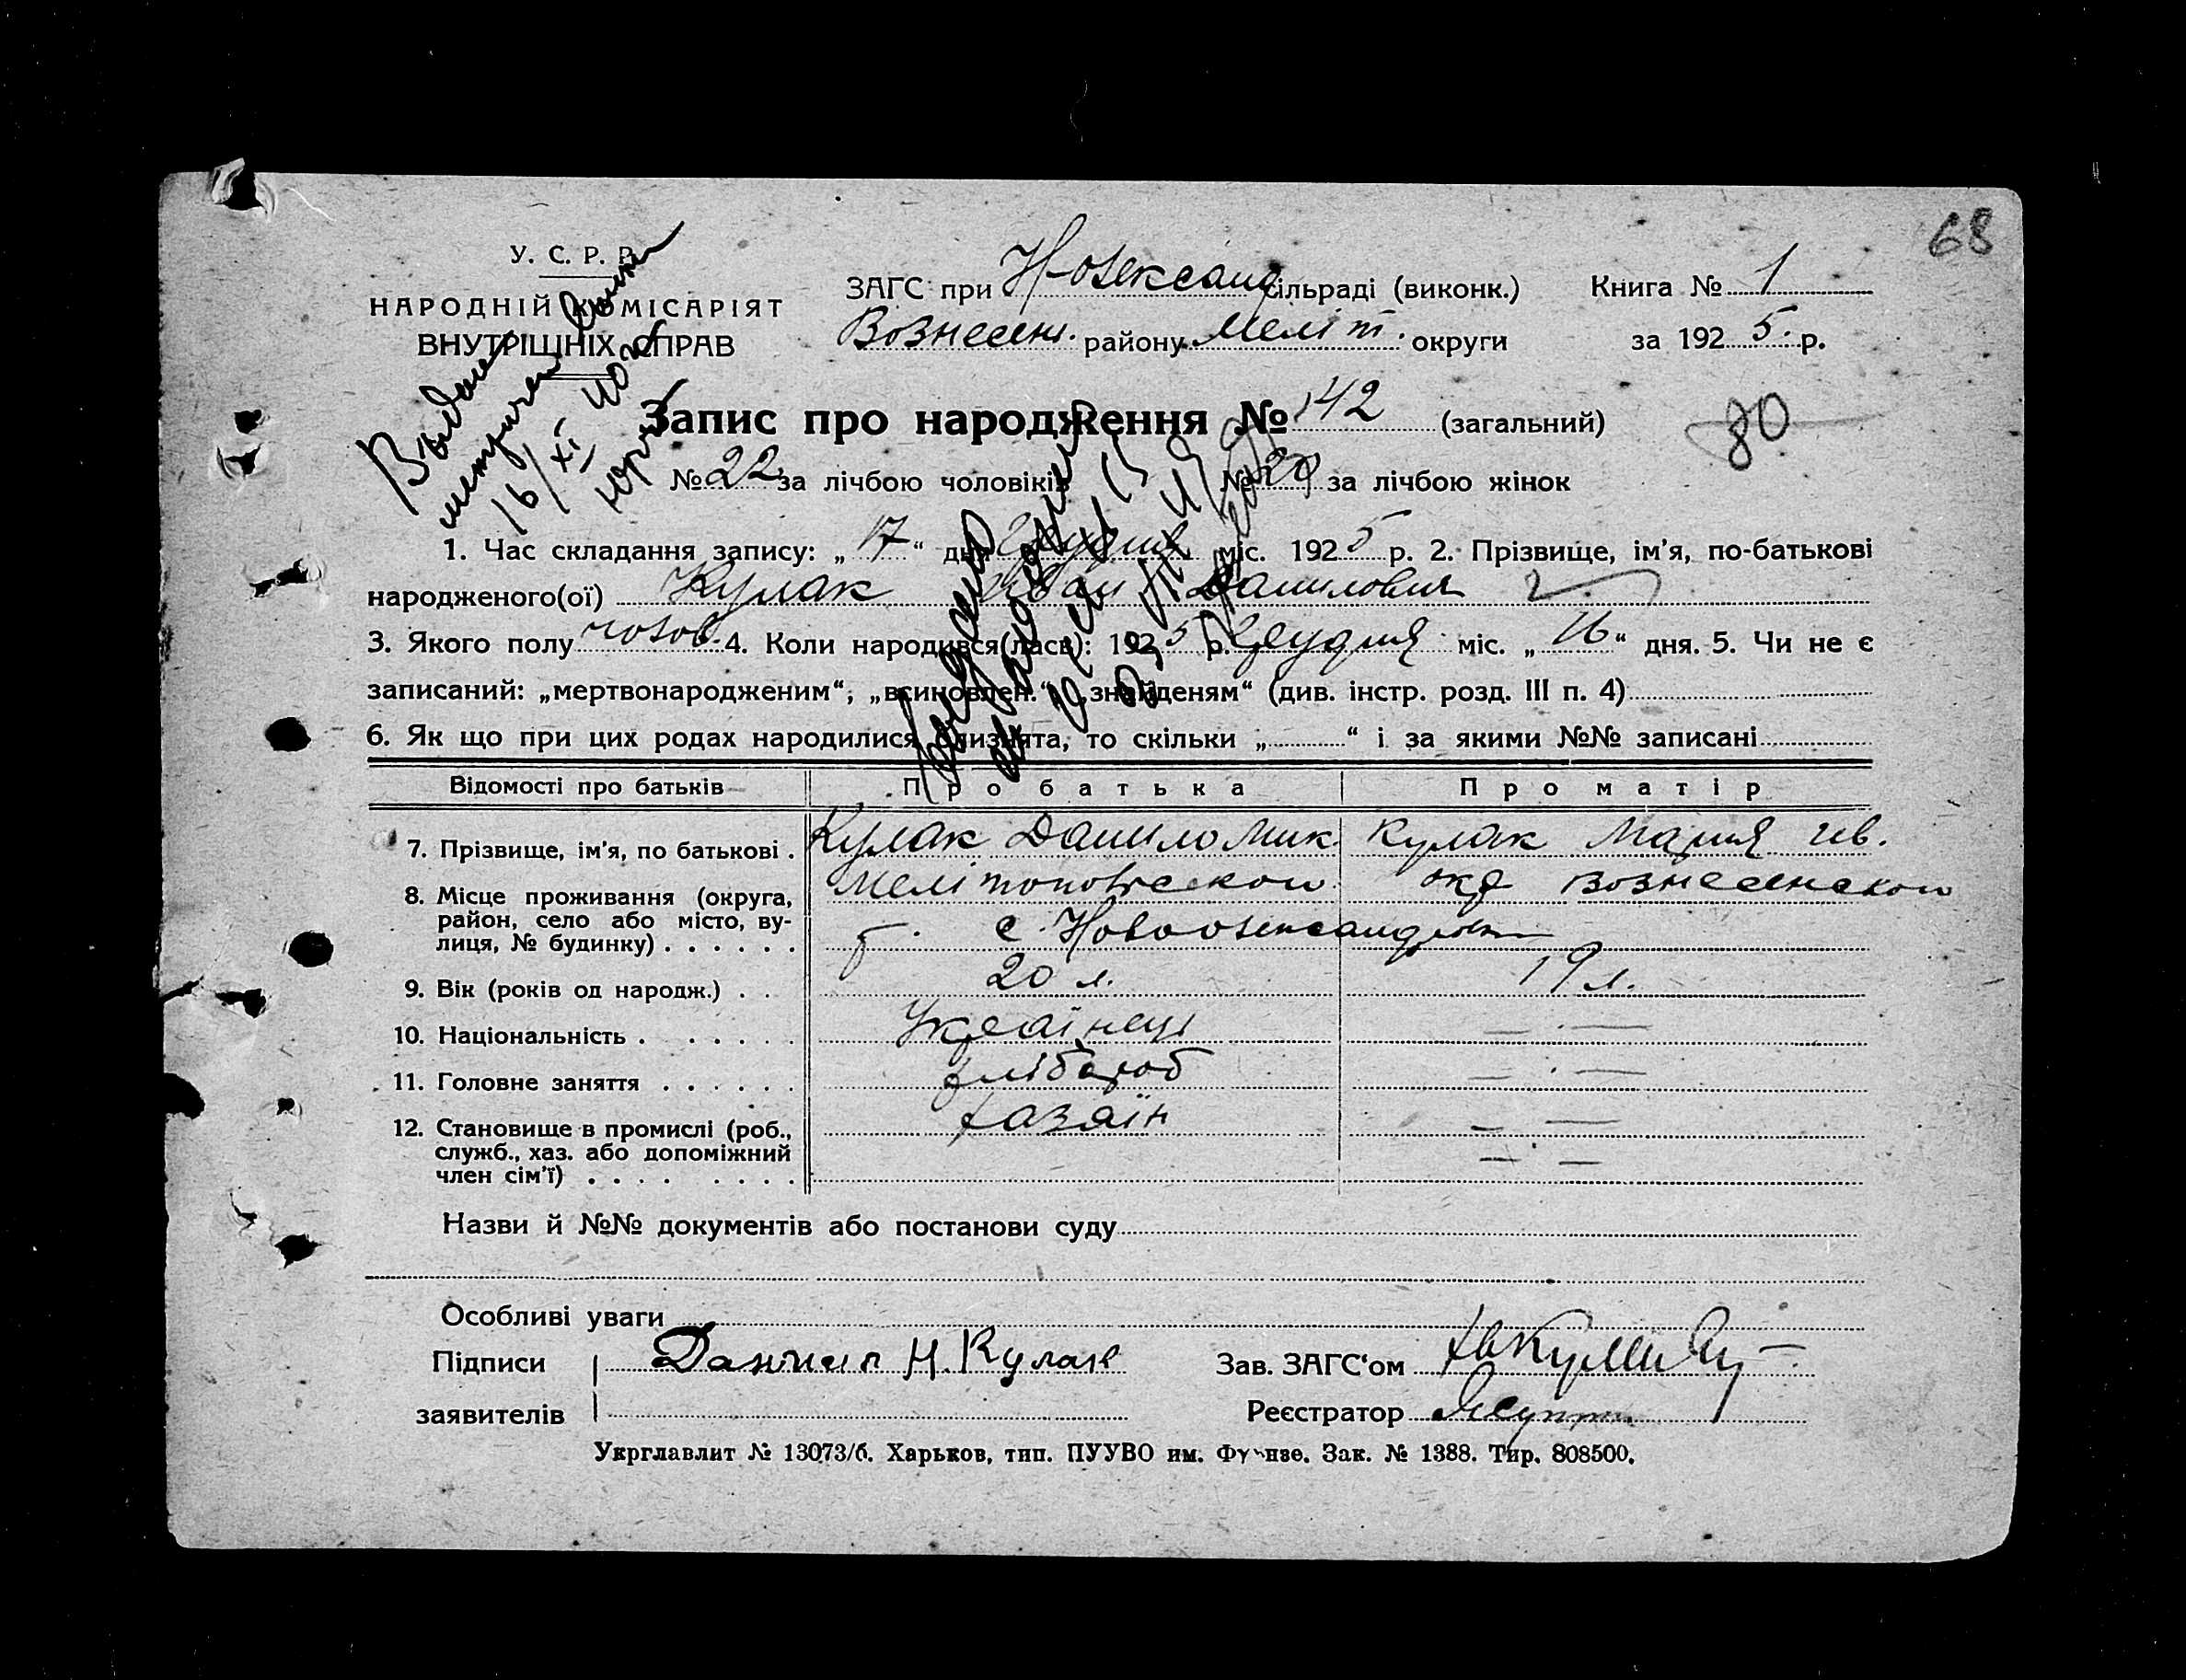 68
У. С. Р. Р.
НАРОДНІЙ КОМІСАРІЯТ
ВНУТРІШНІХ СПРАВ
ЗАГС при Н-Олександ сільраді (виконк.) Книга № 1
Вознесен. району Меліт. округи за 1925 р.
Запис про народження № 142 (загальний)
80
№ 22 за лічбою чоловіків № за лічбою жінок
16/XI 40
1. Час складання запису: „17“ дня Грудня міс. 1925 р. 2. Прізвище, ім’я, по-батькові
народженого(ої) Кулак Іван Данилович
3. Якого полу чолов. 4. Коли народився(лась): 1925 р. Грудня міс. „16“ дня. 5. Чи не є
записаний: „мертвонародженим“, „всиновлен.“ „знайденям“ (див. інстр. розд. III п. 4)
6. Як що при цих родах народилися близнята, то скільки „ “ і за якими №№ записані
Відомості про батьків Про батька Про матір
7. Прізвище, ім’я, по батькові . Кулак Данило Мик. Кулак Мария Ив.
8. Місце проживання (округа, Мелітопольской окр Вознесенского
район, село або місто, вулиця, № будинку) . . . . . . р. с. Новоолександровк
9. Вік (років од народж.) . . 20 л. 19 л.
10. Національність . . . . . . Українець — . —
11. Головне заняття . . . . . . хлібороб — . —
12. Становище в промислі (роб., хазяїн — —
служб., хаз. або допоміжний — . —
член сім’ї) . . . . . . . .
Назви й №№ документів або постанови суду
Особливі уваги
Підписи Даниил Н. Кулак Зав. ЗАГС‘ом
заявителів Реєстратор
Укрглавлит № 13073/б. Харьков, тип. ПУУВО им. Фрунзе. Зак. № 1388. Тир. 808500.